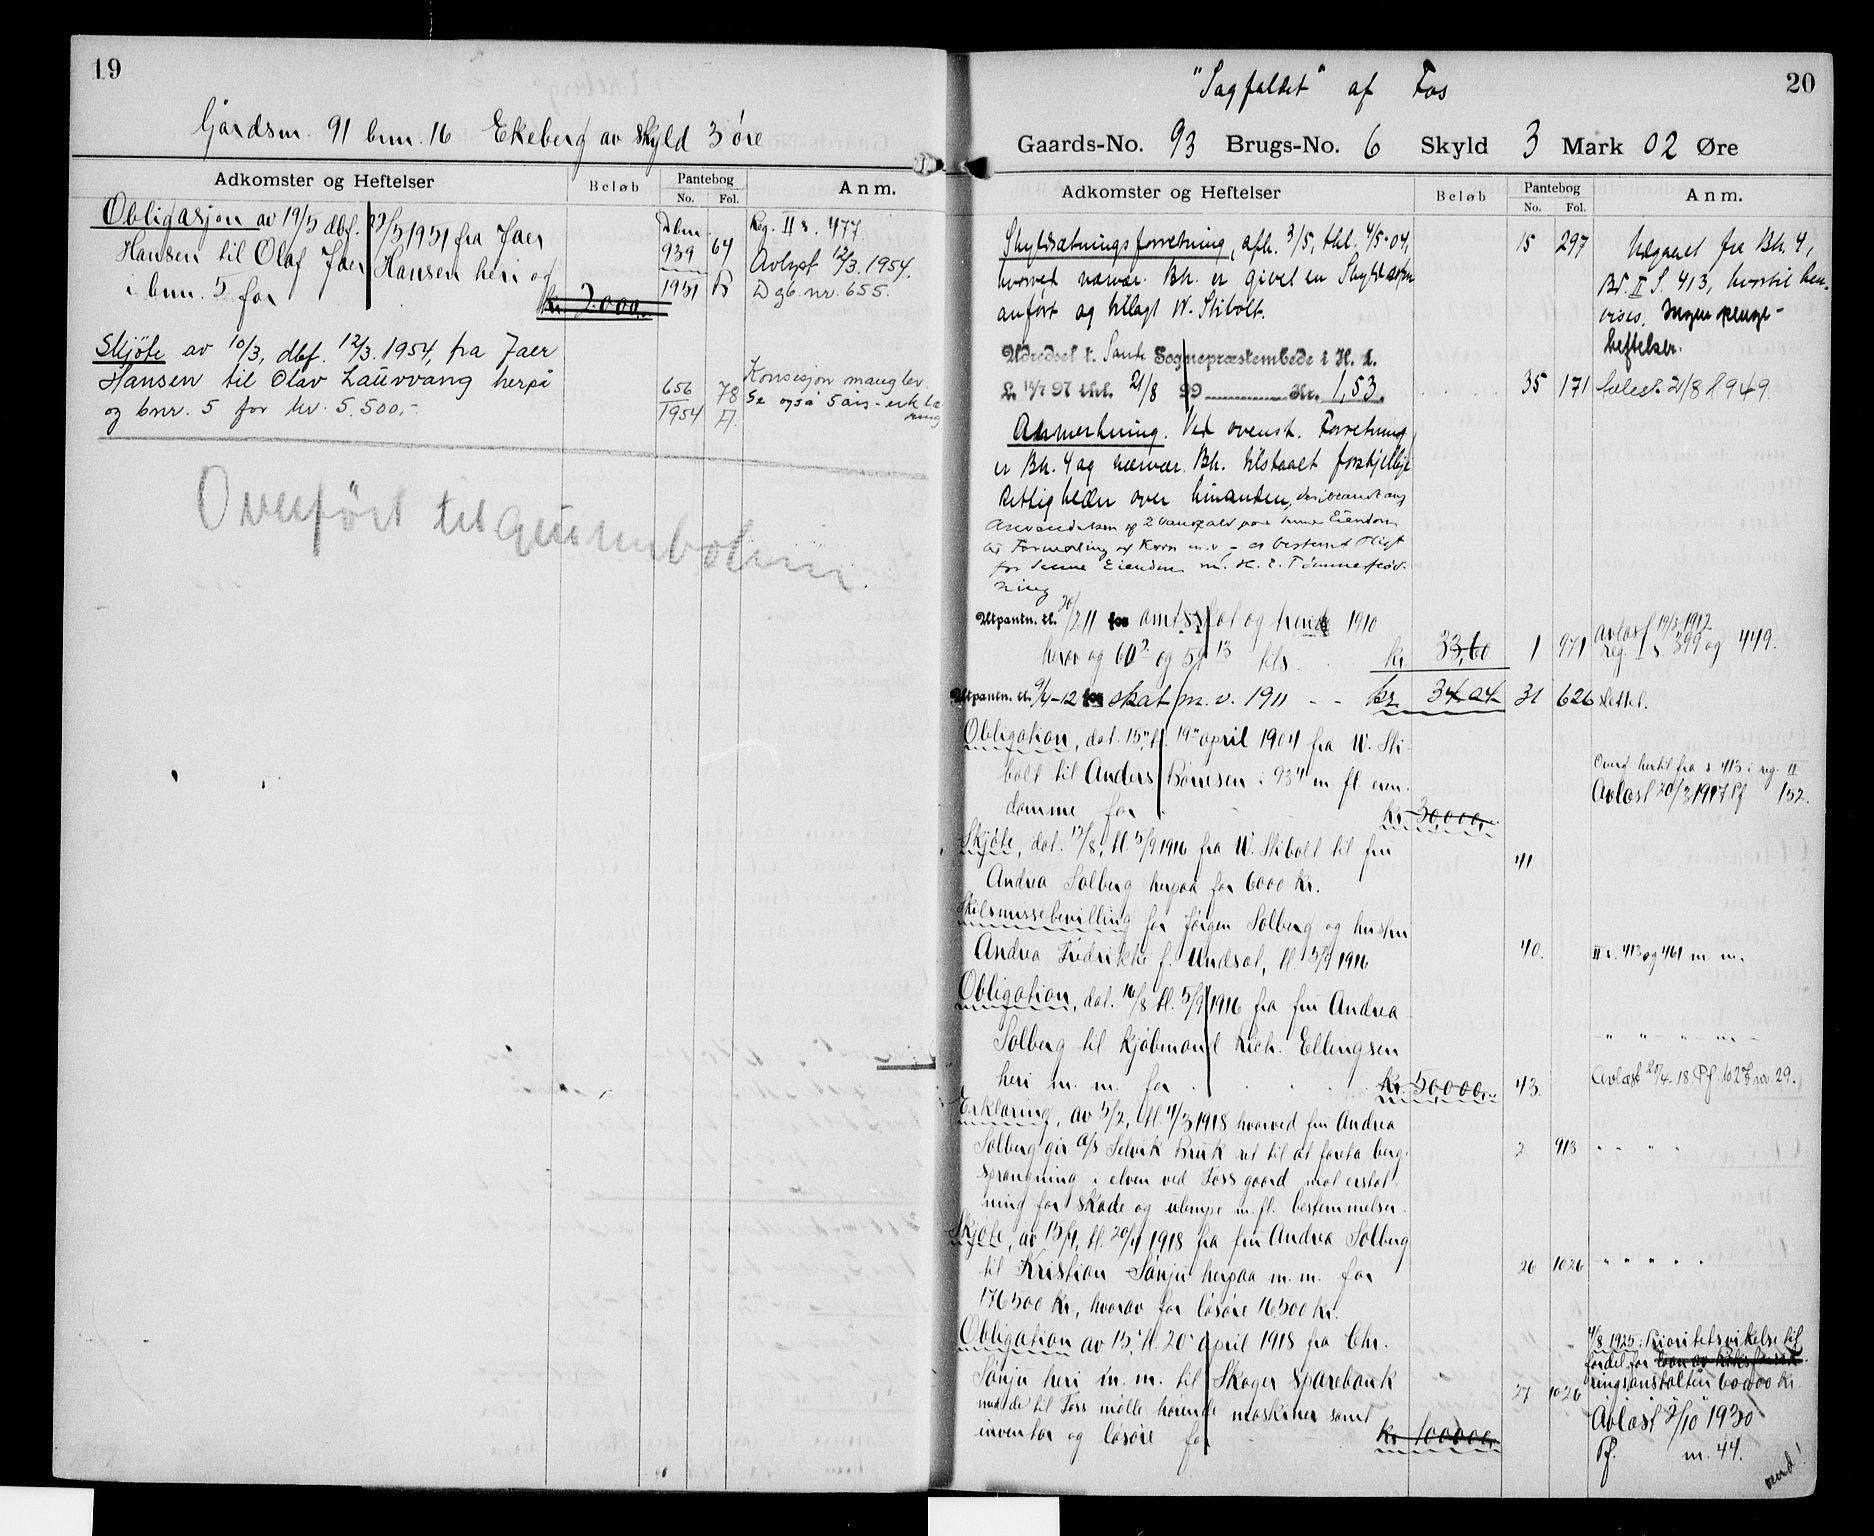 19
Gårdsnr. 91 bnr. 16 Ekeberg av skyld 3 øre
Adkomster og Heftelser
Beløb
Pantebog
No. Fol.
Anm.
Obligasjon av 19/5 dbf. 23/5 1951 fra Jaer
Hansen til Olaf Jaer Hansen heri og
i bnr. 5 for kr. 2000.-
Dbnr. 939 1951 64 B
Reg. II s. 477
Avlyst 12/3. 1954.
Dgb. nr. 655.
Skjøte av 10/3, dbf. 12/3. 1954, fra Jaer
Hansen til Olav Lauvvang herpå
og bnr. 5 for kr. 5.500,-
656 1954 78 A.
Konsesjon mangler.
Se også 5 års-erklæ
ring
Overført til grunnboken.
20
"Sagfaldet" af Fos
Gaards-No. 93 Brugs-No. 6 Skyld 3 Mark 02 Øre
Adkomster og Heftelser
Beløb
Pantebog
No. Fol.
Anm.
Skyldsætningsforretning, afh. 3/5, thl. 4/5-04,
hvorved nærvær. Bk. er givet en Skyld som
anført og tillagt W. Stibolt.
15 297
Udgaaet fra Bk. 4,
Bd. II S. 413, hvortil hen-
vises. Ingen penge-
heftelser.
Udredsel t. Sande Sognepræstembede i H. t.
L. 14/7 97 thl. 21/8 99 Kr. 1,53.
35 171
Anmerkning. Ved ovenst. Forretning
er Bk. 4 og nærvær. Bk. tilstaaet forskjellige
Rettigheder over hinanden, deriblandt ang
Anvendelsen af 2 Vandfald paa denne Eiendom
til Formaling af Korn m.v. - er bestemt Pligt
for denne Eiendom m. H. t. Tømmerflød-
ning
Utpantn. tl. 20/2 11 for amtsskat og herreds 1910
herav og 60² og 59¹³ tils. kr. 33,60
1 971
avlæst 19/3 1912
reg. I s 399 og 449.
Utpantn. tl. 9/4-12 for skat m. v. 1911 - - kr. 34,04
31 626 slettet.
Obligation, dat. 15", tl. 19" april 1904 fra W. Sti-
bolt til Anders Børresen i 93⁴ m. fl. eien-
domme for kr 30,000,-
Overf. hertil fra s 413 i reg. II
Avlæst 20/3 1917 Pf 152.
Skjøte, dat. 17/8, tl. 5/9 1916 fra W. Stibolt til fru
Andrea Solberg herpaa for 6000 kr.
41
Skilsmissebevilling for Jørgen Solberg og hustru
Andrea Fredrikke f. Undsat, tl. 5/9 1916
40.
II s. 413 og 461 m. m.
Obligation, dat. 16/8 tl. 5/9 1916 fra fru Andrea
Solberg til kjøbmand Rich. Ellingsen
heri m. m. for kr. 50,000,-
43.
- " - " - " - " -
Avlæst 20/4. 18. Pf. 102 Bnr. 29.
Erklæring, av 5/2, tl. 4/3 1918 hvorved fru Andrea
Solberg gir A/S Selvik Bruk ret til at foreta berg-
sprængning i elven ved Foss gaard mot erstat-
ning for skade og ulempe m. fl. bestemmelser.
2 913
" " " "
Skjøte, av 15/4, tl. 20/4 1918 fra fru Andrea Solberg
til Kristian Sønju herpaa m. m. for
176500 kr, hvorav for løsøre 16500 kr.
26 1026
" " " " "
Obligation av 15, tl. 20 april 1918 fra Chr.
Sønju heri m. m. til Skoger Sparebank
med de til Foss mølle hørende maskiner samt
inventar og løsøre for kr 100000.-
27 1026
4/8 1925: Prioritetsvikelse til
fordel for
ringsanstalten 60.000 kr
Avlæst 2/10 1930
Pf. m. 44.
vend!